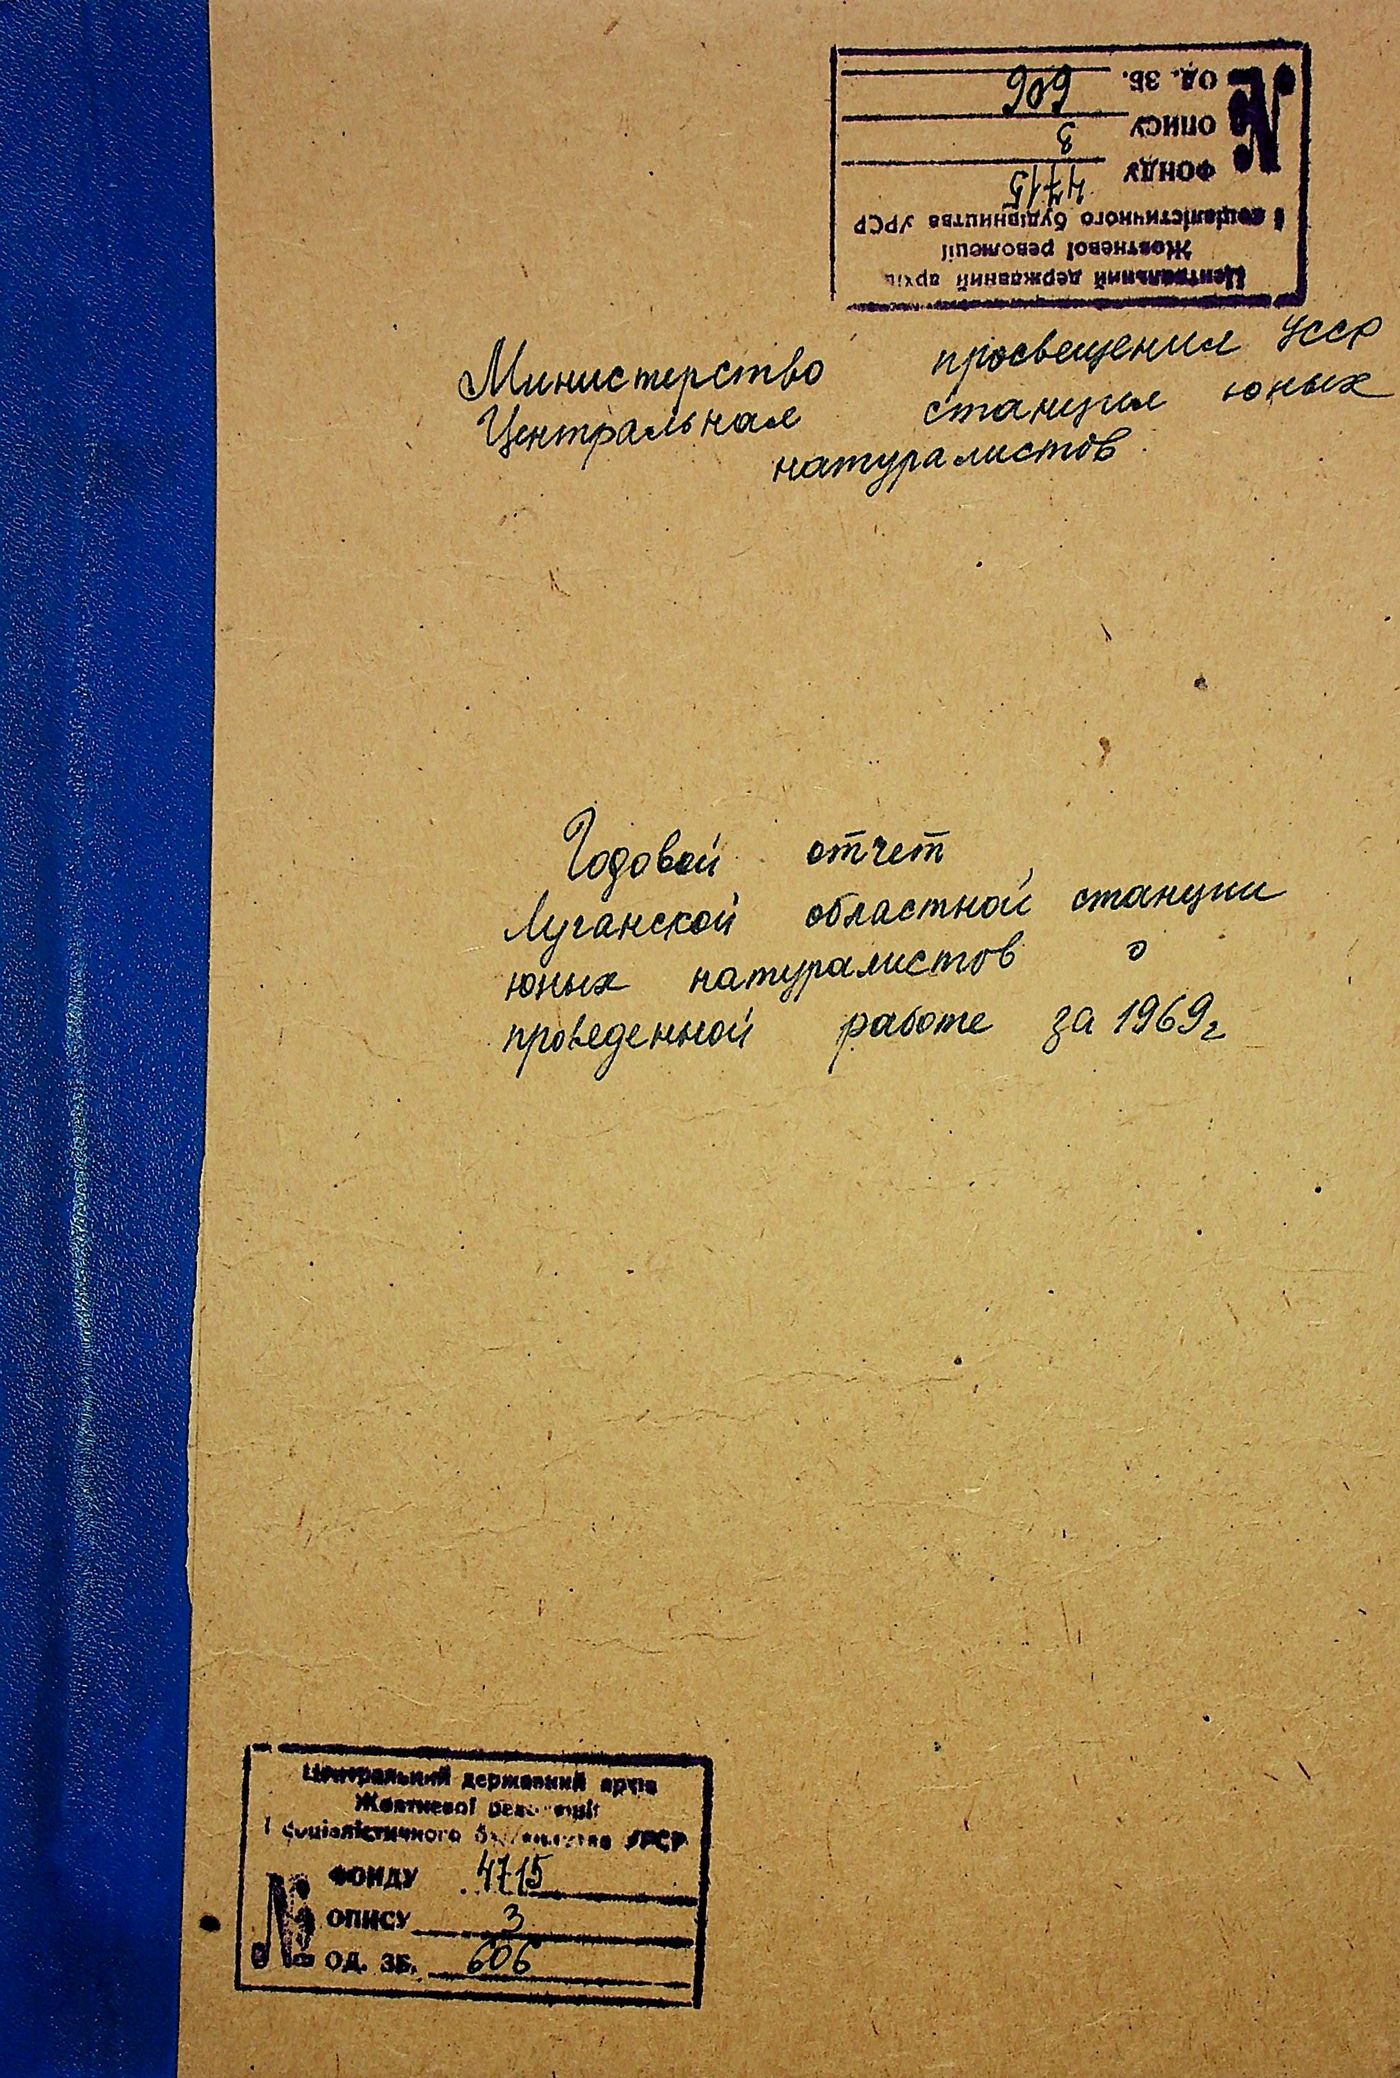 Центральний державний архів
Жовтневої революції
і соціалістичного будівництва УРСР
№ ФОНДУ 4715
ОПИСУ 3
ОД. ЗБ. 606
Министерство просвещения УССР
Центральная станция юных
натуралистов
Годовой отчет
Луганской областной станции
юных натуралистов о
проведенной работе за 1969г
Центральний державний архів
Жовтневої революції
і соціалістичного будівництва УРСР
№ ФОНДУ 4715
ОПИСУ 3
ОД. ЗБ. 606